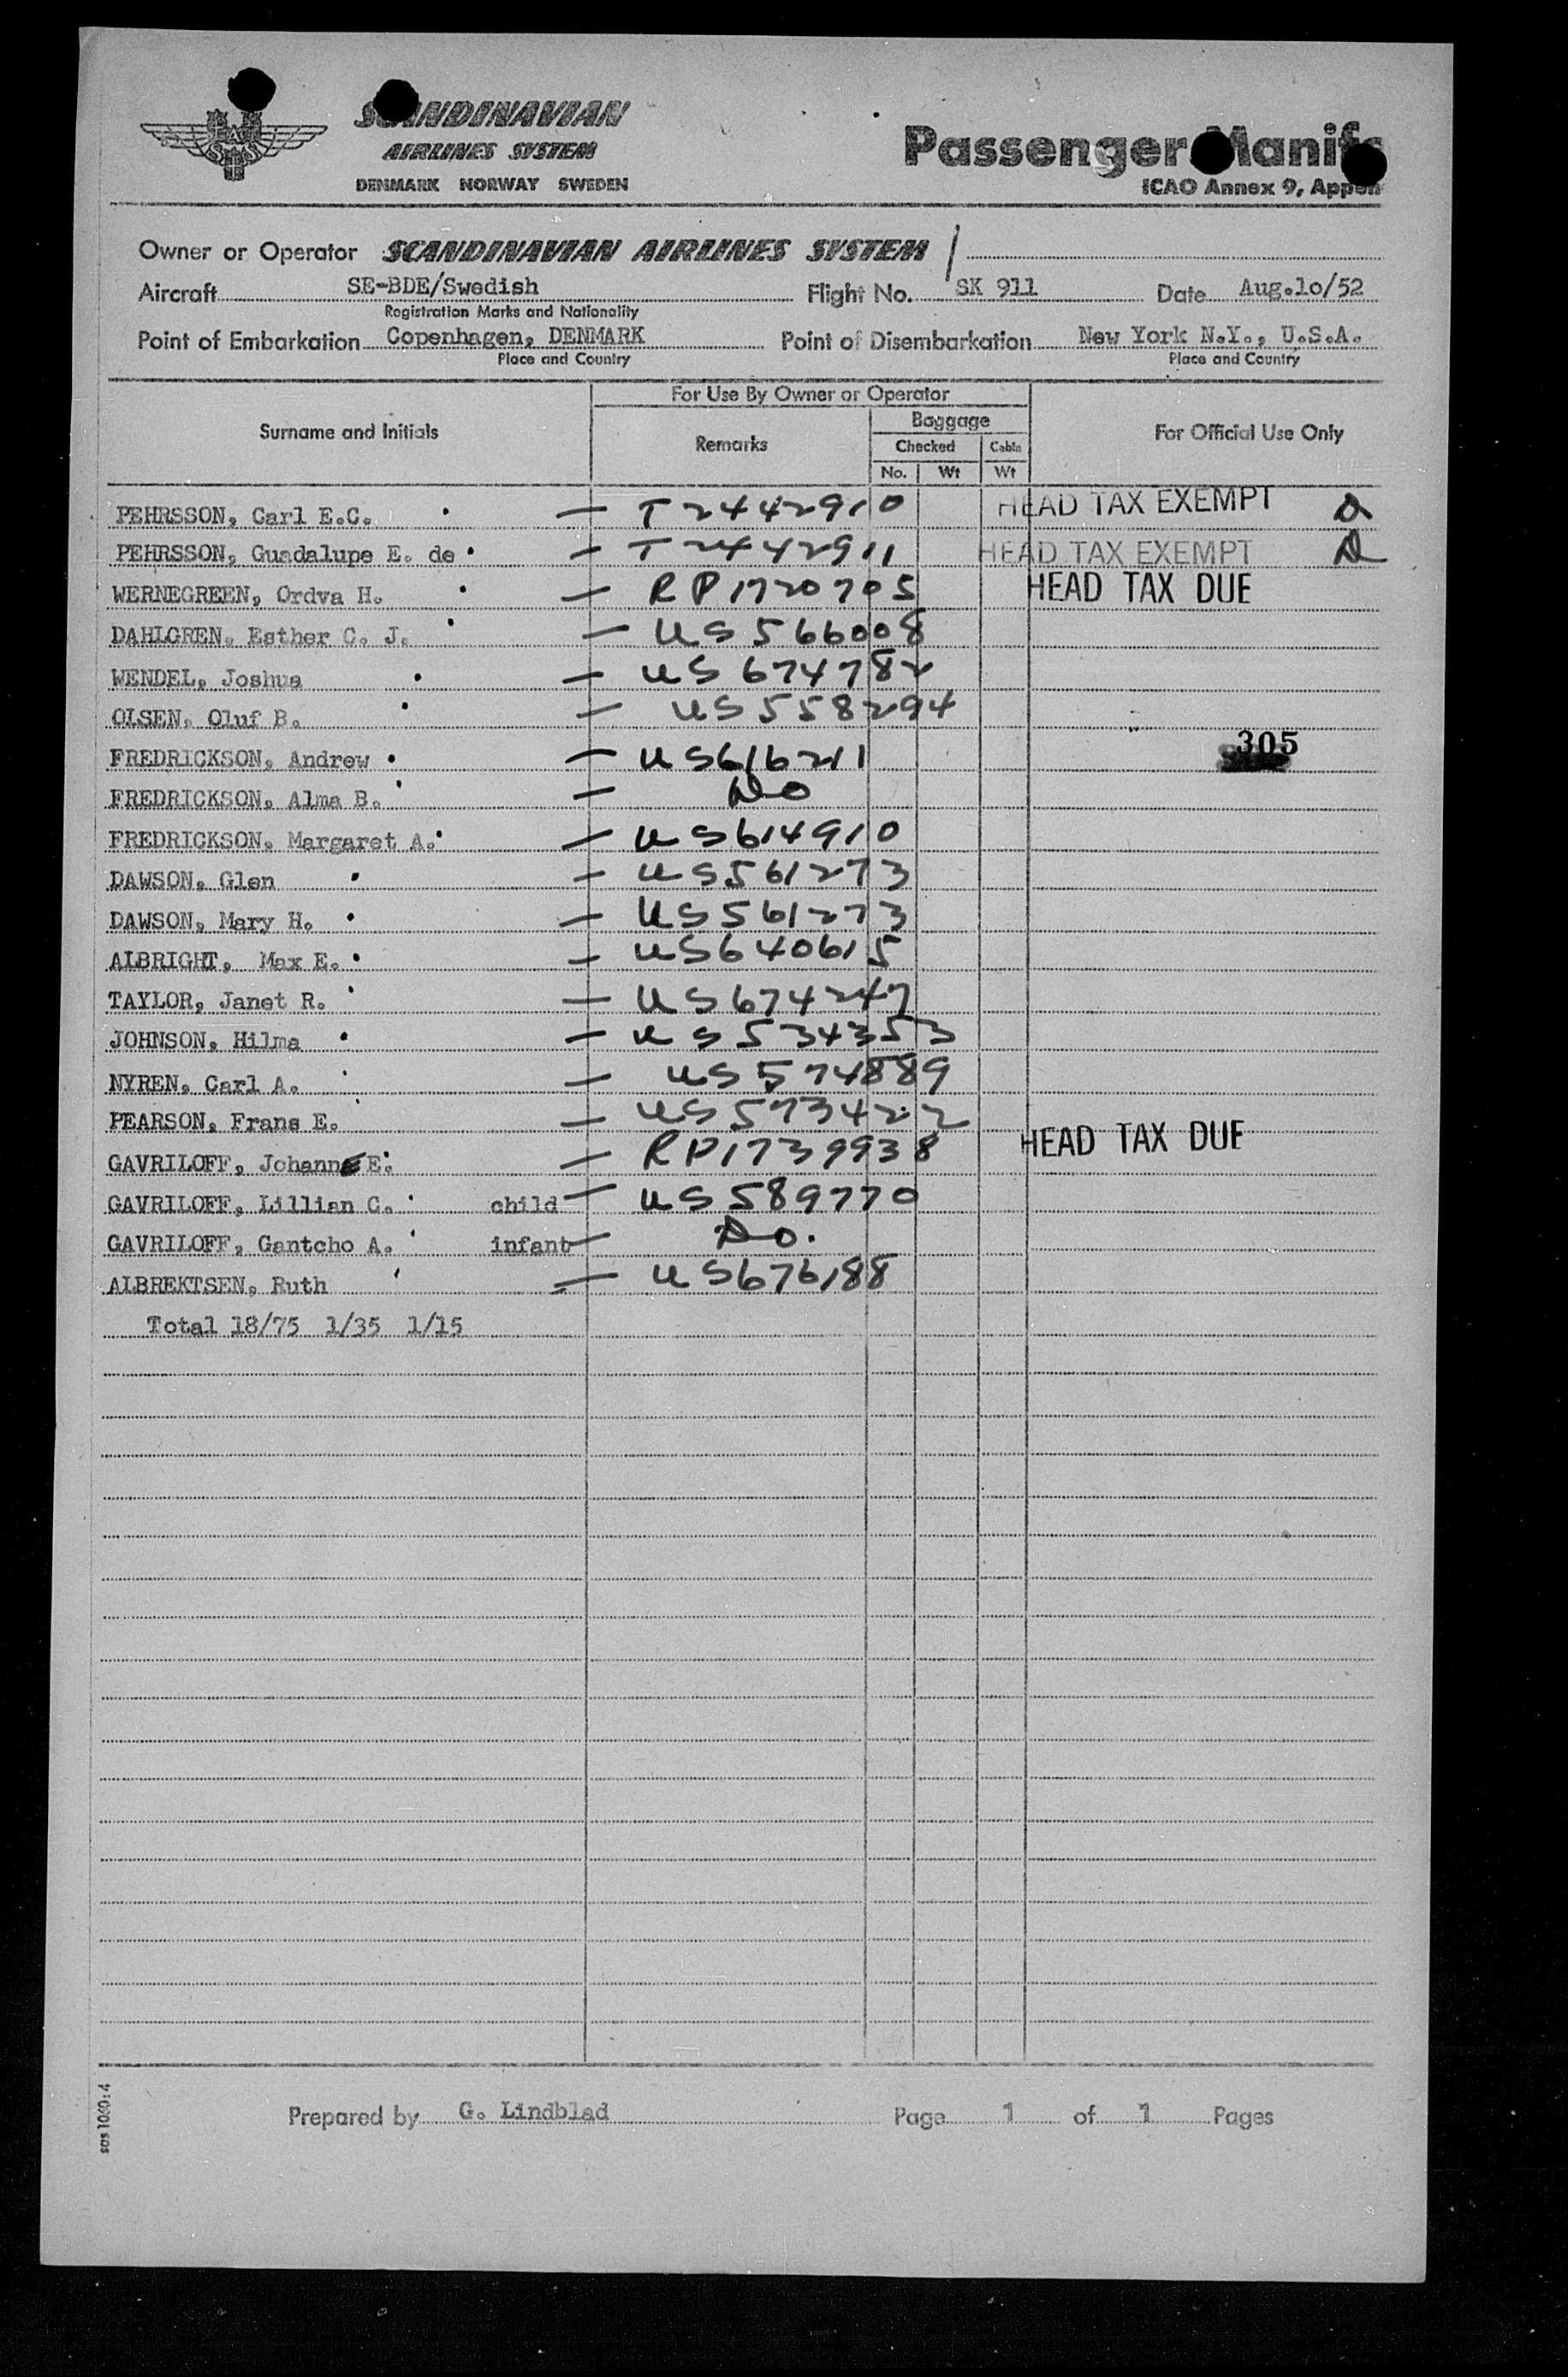 SCANDINAVIAN
AIRLINES SYSTEM
DENMARK NORWAY SWEDEN
Passenger Manifes
ICAO Annex 9, Appen
Owner or Operator SCANDINAVIAN AIRLINES SYSTEM /
Aircraft SE-BDE/Swedish Flight No. SK 911 Date Aug.lo/52
Registration Marks and Nationality
Point of Embarkation Copenhagen, DENMARK Point of Disembarkation New York N.Y., U.S.A.
Place and Country Place and Country
For Use By Owner or Operator
Surname and Initials Remarks Baggage For Official Use Only
Checked Cabin
No. Wt Wt
PEHRSSON, Carl E.C. — T2442910 HEAD TAX EXEMPT
PEHRSSON, Guadalupe E. de — T2442911 HEAD TAX EXEMPT
WERNEGREEN, Ordva H. — RP1720705 HEAD TAX DUE
DAHLGREN, Esther C. J. — US566008
WENDEL, Joshua — US674782
OLSEN, Oluf B. — US558294
FREDRICKSON, Andrew — US616211 305
FREDRICKSON, Alma B. — Do
FREDRICKSON, Margaret A. — US614910
DAWSON, Glen — US561273
DAWSON, Mary H. — US561273
ALBRIGHT, Max E. — US640615
TAYLOR, Janet R. — US674247
JOHNSON, Hilma — US534353
NYREN, Carl A. — US574889
PEARSON, Frans E. — US573422
GAVRILOFF, JohannE E. — RP1739938 HEAD TAX DUE
GAVRILOFF, Lillian C. child — US589770
GAVRILOFF, Gantcho A. infant — Do.
ALBREKTSEN, Ruth — US676188
Total 18/75 1/35 1/15
sas 1060:4
Prepared by G. Lindblad Page 1 of 1 Pages